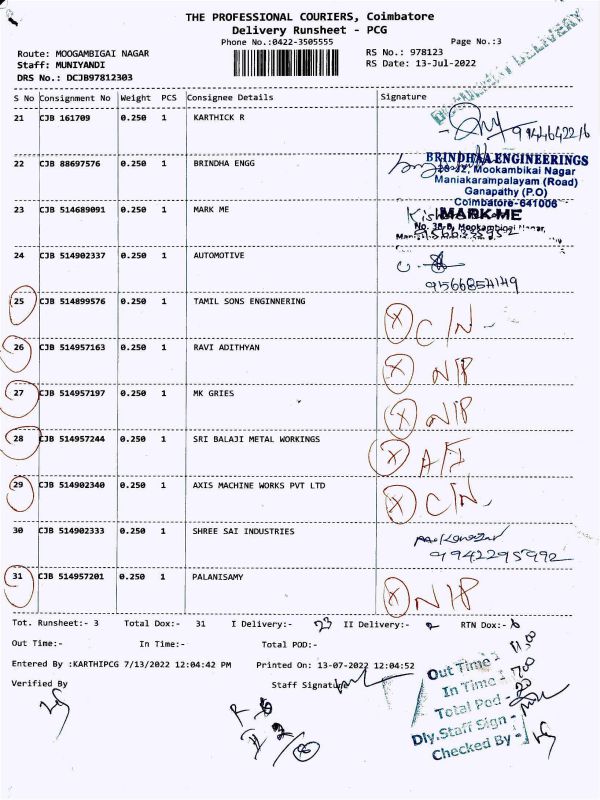 THE PROFESSIONAL COURIERS, Coimbatore
Delivery Runsheet - PCG
Phone No.:0422-3505555
Page No.:3
Route: MOOGAMBIGAI NAGAR
RS No.: 978123
Staff: MUNIYANDI
RS Date: 13-Jul-2022
DRS No.: DCJB97812303
DELIVERY
S No Consignment No Weight PCS Consignee Details Signature
21 CJB 161709 0.250 1 KARTHICK R
22 CJB 88697576 0.250 1 BRINDHA ENGG
BRINDHAA ENGINEERINGS
Mookambikai Nagar
Maniakarampalayam (Road)
Ganapathy (P.O)
Coimbatore-641006
23 CJB 514689091 0.250 1 MARK ME
MARK ME
24 CJB 514902337 0.250 1 AUTOMOTIVE
25 CJB 514899576 0.250 1 TAMIL SONS ENGINNERING X C/N-
26 CJB 514957163 0.250 1 RAVI ADITHYAN X N/P
27 CJB 514957197 0.250 1 MK GRIES X N/P
28 CJB 514957244 0.250 1 SRI BALAJI METAL WORKINGS X
29 CJB 514902340 0.250 1 AXIS MACHINE WORKS PVT LTD X C/N-
30 CJB 514902333 0.250 1 SHREE SAI INDUSTRIES
9942295992
31 CJB 514957201 0.250 1 PALANISAMY X N/P
Tot. Runsheet:- 3 Total Dox:- 31 I Delivery:- 23 II Delivery:- 2 RTN Dox:- 6
Out Time:- In Time:- Total POD:-
Entered By :KARTHIPCG 7/13/2022 12:04:42 PM Printed On: 13-07-2022 12:04:52
Verified By Staff Signature
Out Time -
In Time -
Total Pod -
Dly.Staff Sign -
Checked By -